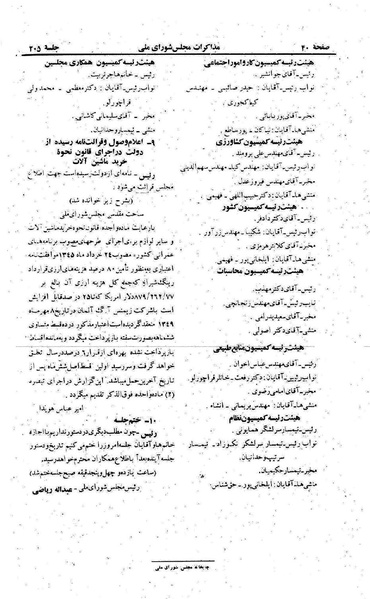 صفحهٔ ۲۰
مذاکرات مجلس شورای ملی
جلسهٔ ۲۰۵
هیئت رئیسه کمیسیون کار و امور اجتماعی
رئیس ـ آقای جوانشیر.
نواب رئیس ـ آقایان : حیدر صائبی ـ مهندس
کیا کجوری.
مخبر ـ آقای پور بابائی
منشی‌ها ـ آقایان : نیاکان ـ پور ساطع.
هیئت رئیسه کمیسیون کشاورزی
رئیس ـ آقای مهندس علی برومند.
نواب رئیس ـ آقایان : مهندس کیا ـ مهندس سهم‌الدینی
مخبر ـ آقای مهندس فیروز عدل.
منشی‌ها ـ آقایان : دکتر حبیب‌اللهی ـ فهیمی.
هیئت رئیسه کمیسیون کشور
رئیس ـ آقای دکتر دادفر.
نواب رئیس ـ آقایان : شکیبا ـ مهندس زرآور.
مخبر ـ آقای کلانتر هرمزی.
منشی‌ها ـ آقایان : ایلخانی‌پور ـ فهیمی.
هیئت رئیسه کمیسیون محاسبات
رئیس ـ آقای دکتر مهذب.
نواب رئیس ـ آقای مهندس زنجانچی.
مخبر ـ آقای صیدرمیدرامی
منشی ـ آقای دکتر اصولی.
هیئت رئیسه کمیسیون منابع طبیعی
رئیس ـ آقای مهندس عباس اخوان.
نواب رئیس ـ آقایان : دکتر رفعت ـ خانلر قراچورلو.
مخبر ـ آقای امامی رضوی.
منشی‌ها ـ آقایان : مهندس بریمانی ـ انشاء
هیئت رئیسه کمیسیون نظام
رئیس ـ تیمسار سرلشکر همایونی.
نواب رئیس ـ تیمسار سرلشکر نکوزاد ـ تیمسار
سرتیپ وحدانیان.
مخبر ـ تیمسار حکیمیان.
منشی‌ها ـ آقایان : ایلخانی‌پور ـ حق‌شناس.
هیئت رئیسه کمیسیون همکاری مجلسین
رئیس ـ خانم هاجر تربیت.
نواب رئیس ـ آقایان : دکتر معظمی ـ محمد ولی
قراچورلو.
مخبر ـ آقای سلیمانی کاشانی.
منشی ـ تیمسار وحدانیان.
۹ ـ اعلام وصول و قرائت نامه رسیده از
دولت در اجرای قانون نحوهٔ
خرید ماشین آلات
رئیس ـ نامه‌ای از دولت رسیده است جهت اطلاع
مجلس قرائت می‌شود.
(بشرح زیر خوانده شد)
ساحت مقدس مجلس شورای ملی
بارعایت مادهٔ واحده قانون نحوه خرید ماشین آلات
و سایر لوازم برای اجرای طرح‌های مصوب برنامه‌های
عمرانی کشور، مصوب ۲۴ خرداد ماه ۱۳۴۵ موافقت نامه
اعتباری به منظور تأمین ۸۰ درصد هزینه‌های ارزی قرارداد
رینگ شیراز که جمع کل هزینه ارزی آن بالغ بر
۸۷۹/۲۶۲/۷۷ دلار امریکا تا ۲۵ درصد قابل افزایش
است با شرکت زیمنس آ.گ آلمان در تاریخ ۸ مهر ماه
۱۳۴۹ منعقد گردیده است اعتبار مذکور در ده قسط متساوی
ششماهه بصورت سفته بازپرداخت میگردد و بمانده اقساط
بازپرداخت نشده بهره‌ای از قرار ۶ درصد در سال تعلق
خواهد گرفت و سررسید اولین قسط اصل شش ماه پس از
تاریخ آخرین حمل میباشد. این گزارش در اجرای تبصره
(۲) ماده واحده فوق الذکر تقدیم میگردد
امیر عباس هویدا
۱۰ ـ ختم جلسه
رئیس ـ چون مطلب دیگری در دستور نداریم با اجازه
خانم‌ها و آقایان جلسه امروز را ختم می‌کنیم تاریخ و دستور
جلسه آینده بعداً باطلاع همکاران محترم خواهد رسید.
(ساعت یازده و چهل و پنج دقیقه صبح جلسه ختم شد)
رئیس مجلس شورای ملی ـ عبدالله ریاضی
چاپخانه مجلس شورای ملی